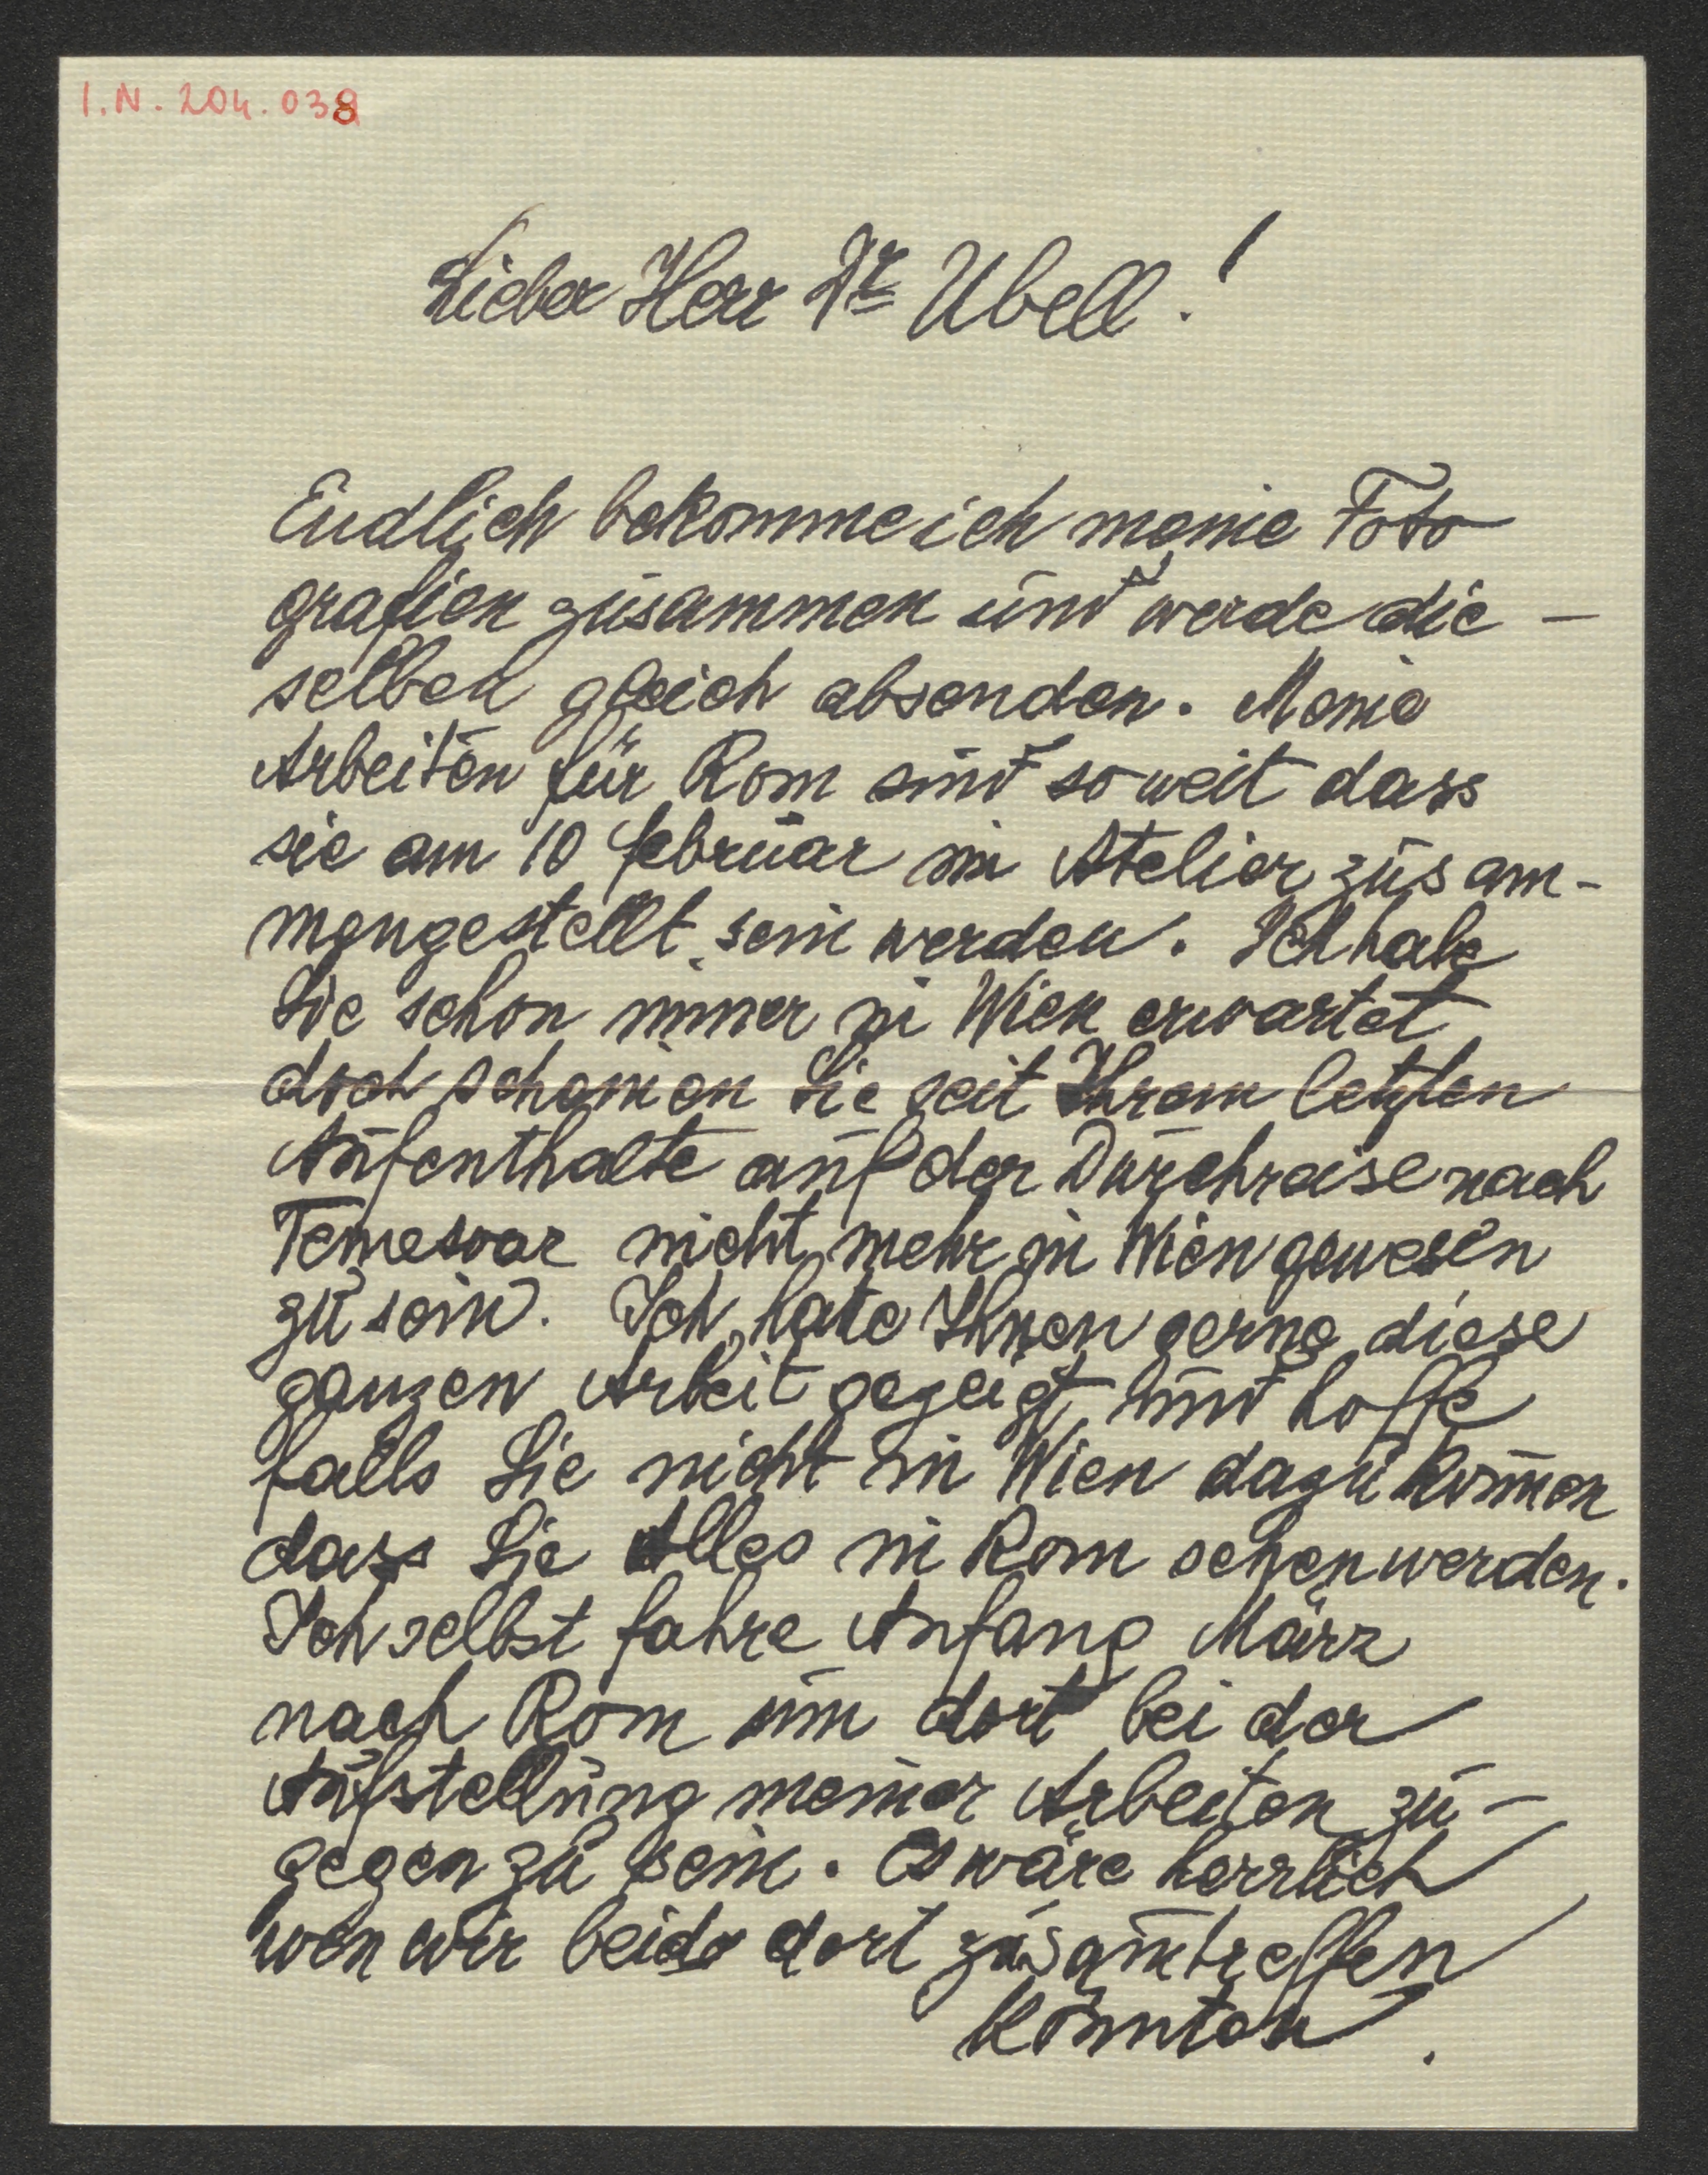 I.N. 204.038
Lieber Herr Dr Ubell!
Endlich bekomme ich meine Foto
grafien zusammen und werde die –
selben gleich absenden. Meine
Arbeiten für Rom sind soweit dass
sie am 10 februar im Atelier zusam-
mengestellt sein werden. Ich habe
Sie schon im̅er in Wien erwartet
doch scheinen Sie seit Ihrem letzten
Aufenthalte auf der Durchreise nach
Temesvar nicht mehr in Wien gewesen
zu sein. Ich hätte Ihnen gerne diese
ganzen Arbeit gezeigt und hoffe
falls Sie nicht in Wien dazu kom̅en
dass Sie Alles in Rom sehen werden.
Ich selbst fahre Anfang März
nach Rom um dort bei der
Aufstellung meiner Arbeiten zu –
gegen zu sein. Es wäre herrlich
wen wir beide dort zusam̅treffen
könnten.